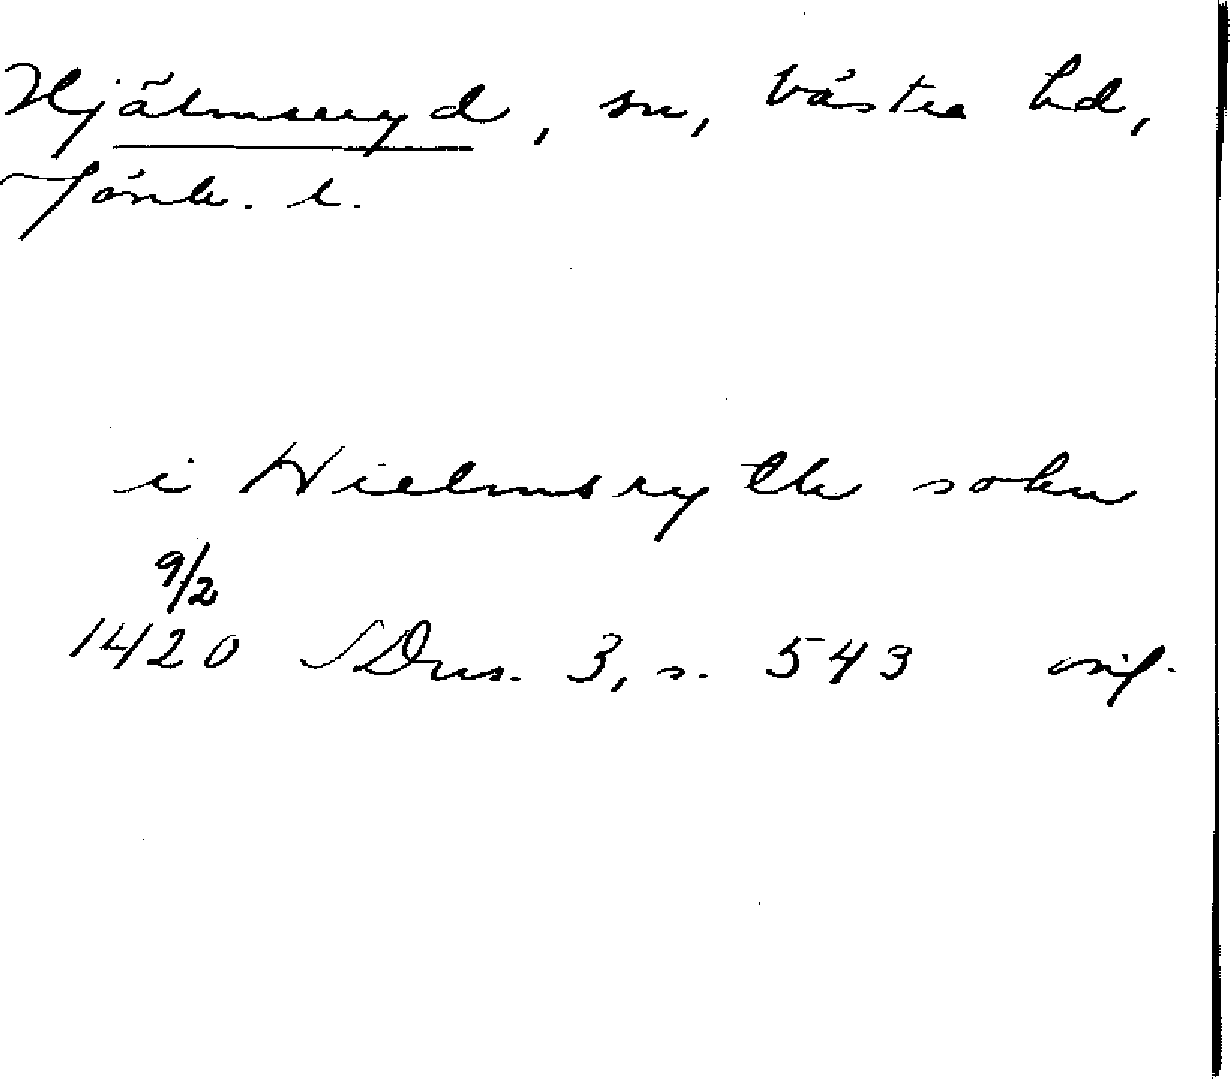 Hjälmseryd, sn, Västra hd,
Jönk. l.
i Hielmsryth sokn
9/2
1420 SDns. 3, s. 543 orig.